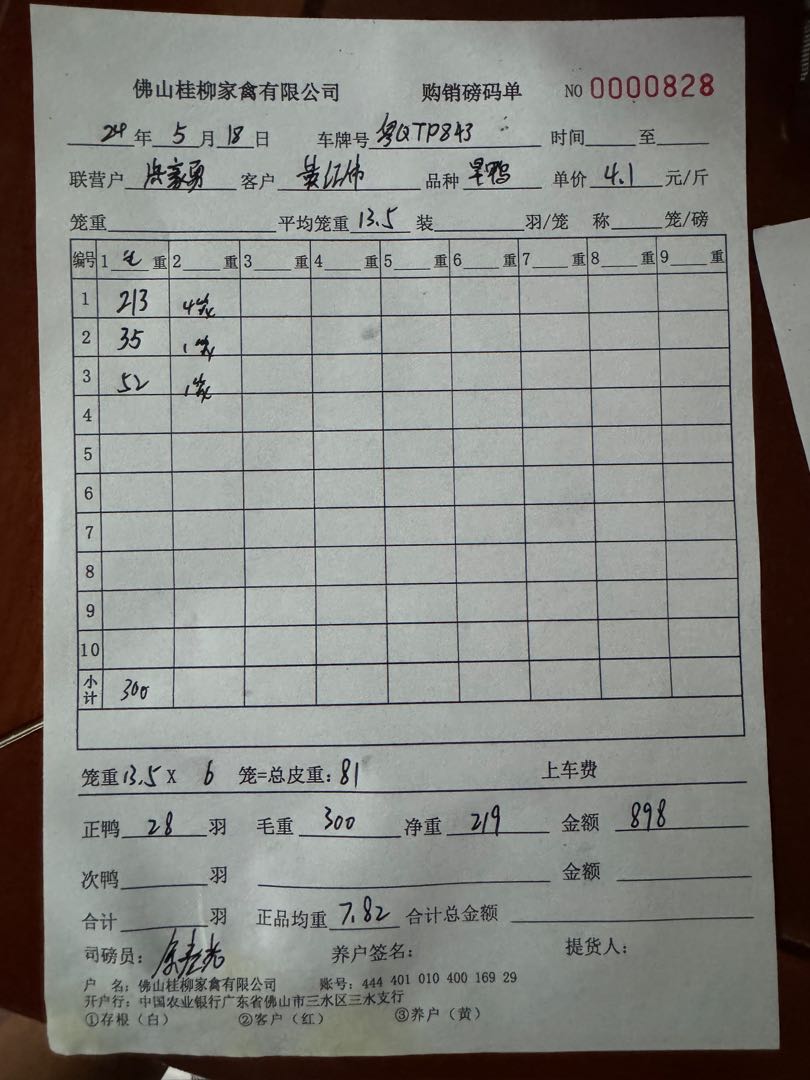 佛山桂柳家禽有限公司 购销磅码单 NO 0000828
24 年 5 月 18 日 车牌号 粤QTP843 时间 至
联营户 家勇 客户 黄红伟 品种 旱鸭 单价 4.1 元/斤
笼重 平均笼重 13.5 装 羽/笼 称 笼/磅
编号 1 毛 重 2 重 3 重 4 重 5 重 6 重 7 重 8 重 9 重
1 213 4笼
2 35 1笼
3 52 1笼
4
5
6
7
8
9
10
小计 300
笼重 13.5 X 6 笼=总皮重: 81 上车费
正鸭 28 羽 毛重 300 净重 219 金额 898
次鸭 羽 金额
合计 羽 正品均重 7.82 合计总金额
司磅员: 养户签名: 提货人:
户 名: 佛山桂柳家禽有限公司 账号: 444 401 010 400 169 29
开户行: 中国农业银行广东省佛山市三水区三水支行
①存根(白) ②客户(红) ③养户(黄)